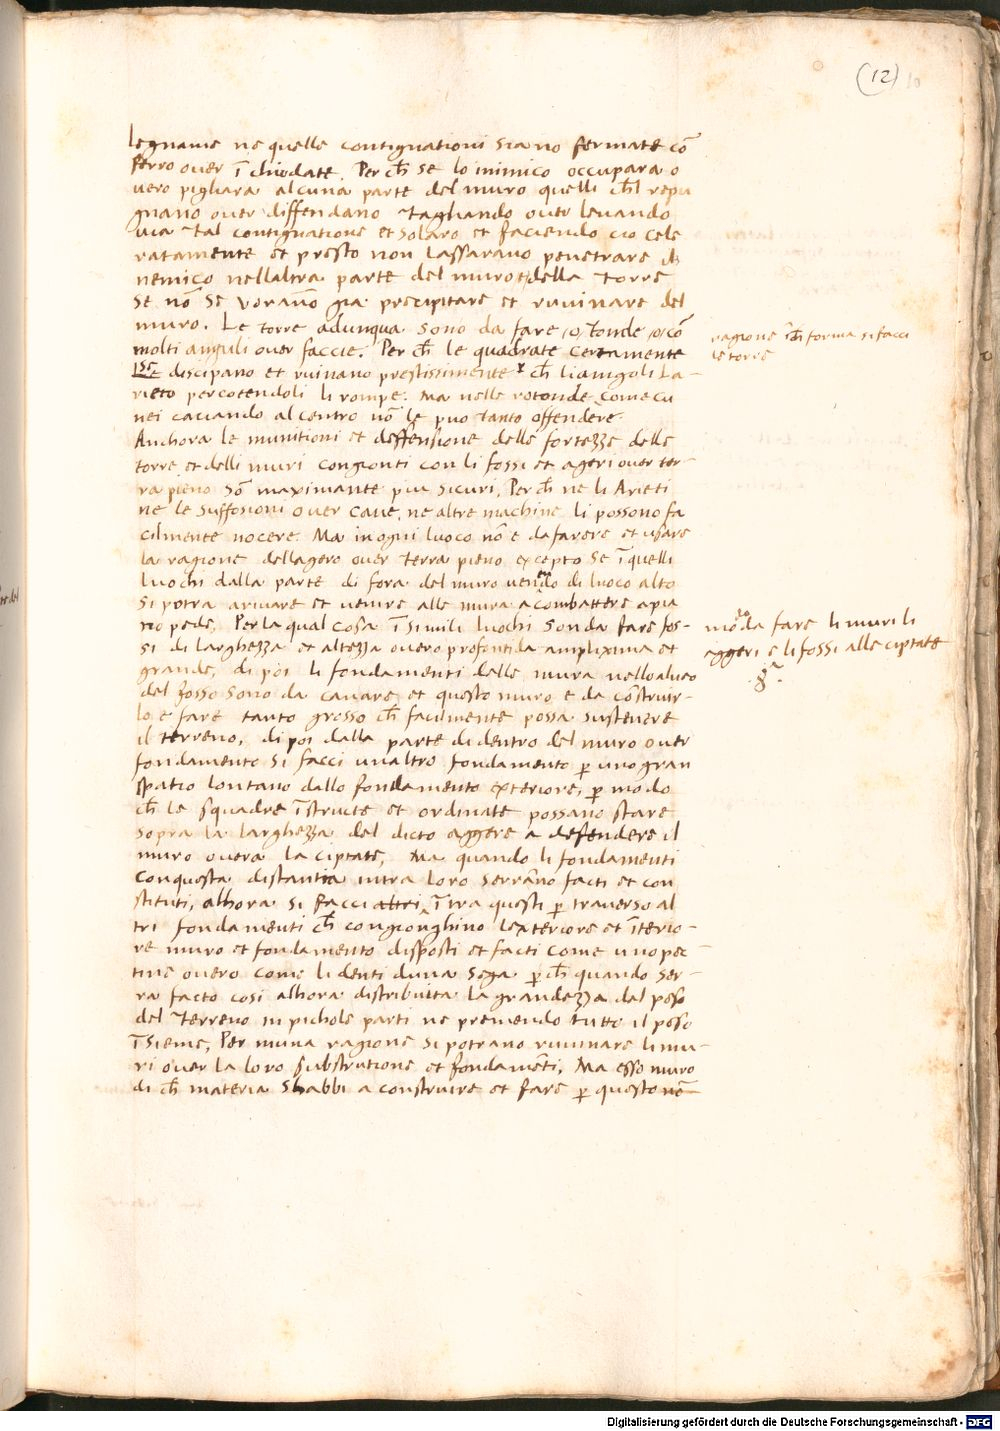 (12) 10
legname ne quelle contignationi siano fermate cō
ferro over ī chiodate. Per ch̄ se lo inimico occupara o
vero pigliara alcuna parte del muro quelli ch̄l repu
gnano over diffendano tagliando over levando
via tal contignatione et solaro et faciendo cio cele
ratamente et presto non lassarano penetrare il
nemico nellaltra parte del muro et della torre
se nō se vorrano gia precipitare et ruvinare del
muro. Le torre adunqua sono da fare /o/ tonde /o/ cō
molti anguli over faccie. Per ch̄ le quadrate certamente
se discipano et ruinano prestissimente ch̄ li anigoli La
rieto percotendoli li rompe. Ma nelle rotonde come cu
nei caciando al centro nō le puo tanto offendere.
Anchora le munitioni et deffensione delle fortezze delle
torre et delli muri congionti con li fossi et ageri over ter-
ra pieno sō maximante piu sicuri, Per ch̄ ne li Arieti
ne le suffosioni over cave, ne altre machine li possono fa
cilmente nocere. Ma in ogni luoco nō e da farere et usare
la ragione dellagero over terra pieno excepto se ī quelli
luochi dalla parte di fora del muro venendo di luoco alto
si potra arivare et venire alle mura a combattere a pia
no pede, Per la qual cosa ī simili luochi son da fare fos-
si di larghezza et altezza overo profontida amplixima et
grande, di poi li fondamenti delle mura nello alveo
del fosso sono da cavare, et questo muro e da cōstruir-
lo e fare tanto grosso ch̄ facilmente possa sustenere
il terreno, di poi dalla parte di dentro del muro over
fondamento si facci unaltro fondamento p uno gran
spatio lontano dallo fondamento exteriore, p modo
ch̄ le squadre īstructe et ordinate possano stare
sopra la larghezza del dicto aggere a defendere il
muro overa la ciptate, Ma quando li fondamenti
con questa distantia intra loro serrāno facti et con
stituti, alhora si facci altri ītra questi p traverso al
tri fondamenti ch̄ congionghino lexteriore et īterio-
re muro et fondamento disposti et facti come uno pec
tine overo come li denti duna sega p ch̄ quando ser-
ra facto cosi alhora distributta la grandezza del peso
del terreno in pichole parti ne premendo tutto il peso
īsieme, Per niuna ragione si potrano ruvinare li mu-
ri over la loro substrutione et fondamēti, Ma esso muro
di ch̄ materia shabbi a construire et fare p questo nō
ragione ī ch̄ forma si facci
le torre
modo da fare li muri li
aggeri e li fossi alle ciptate
Digitalisierung gefördert durch die Deutsche Forschungsgemeinschaft - DFG